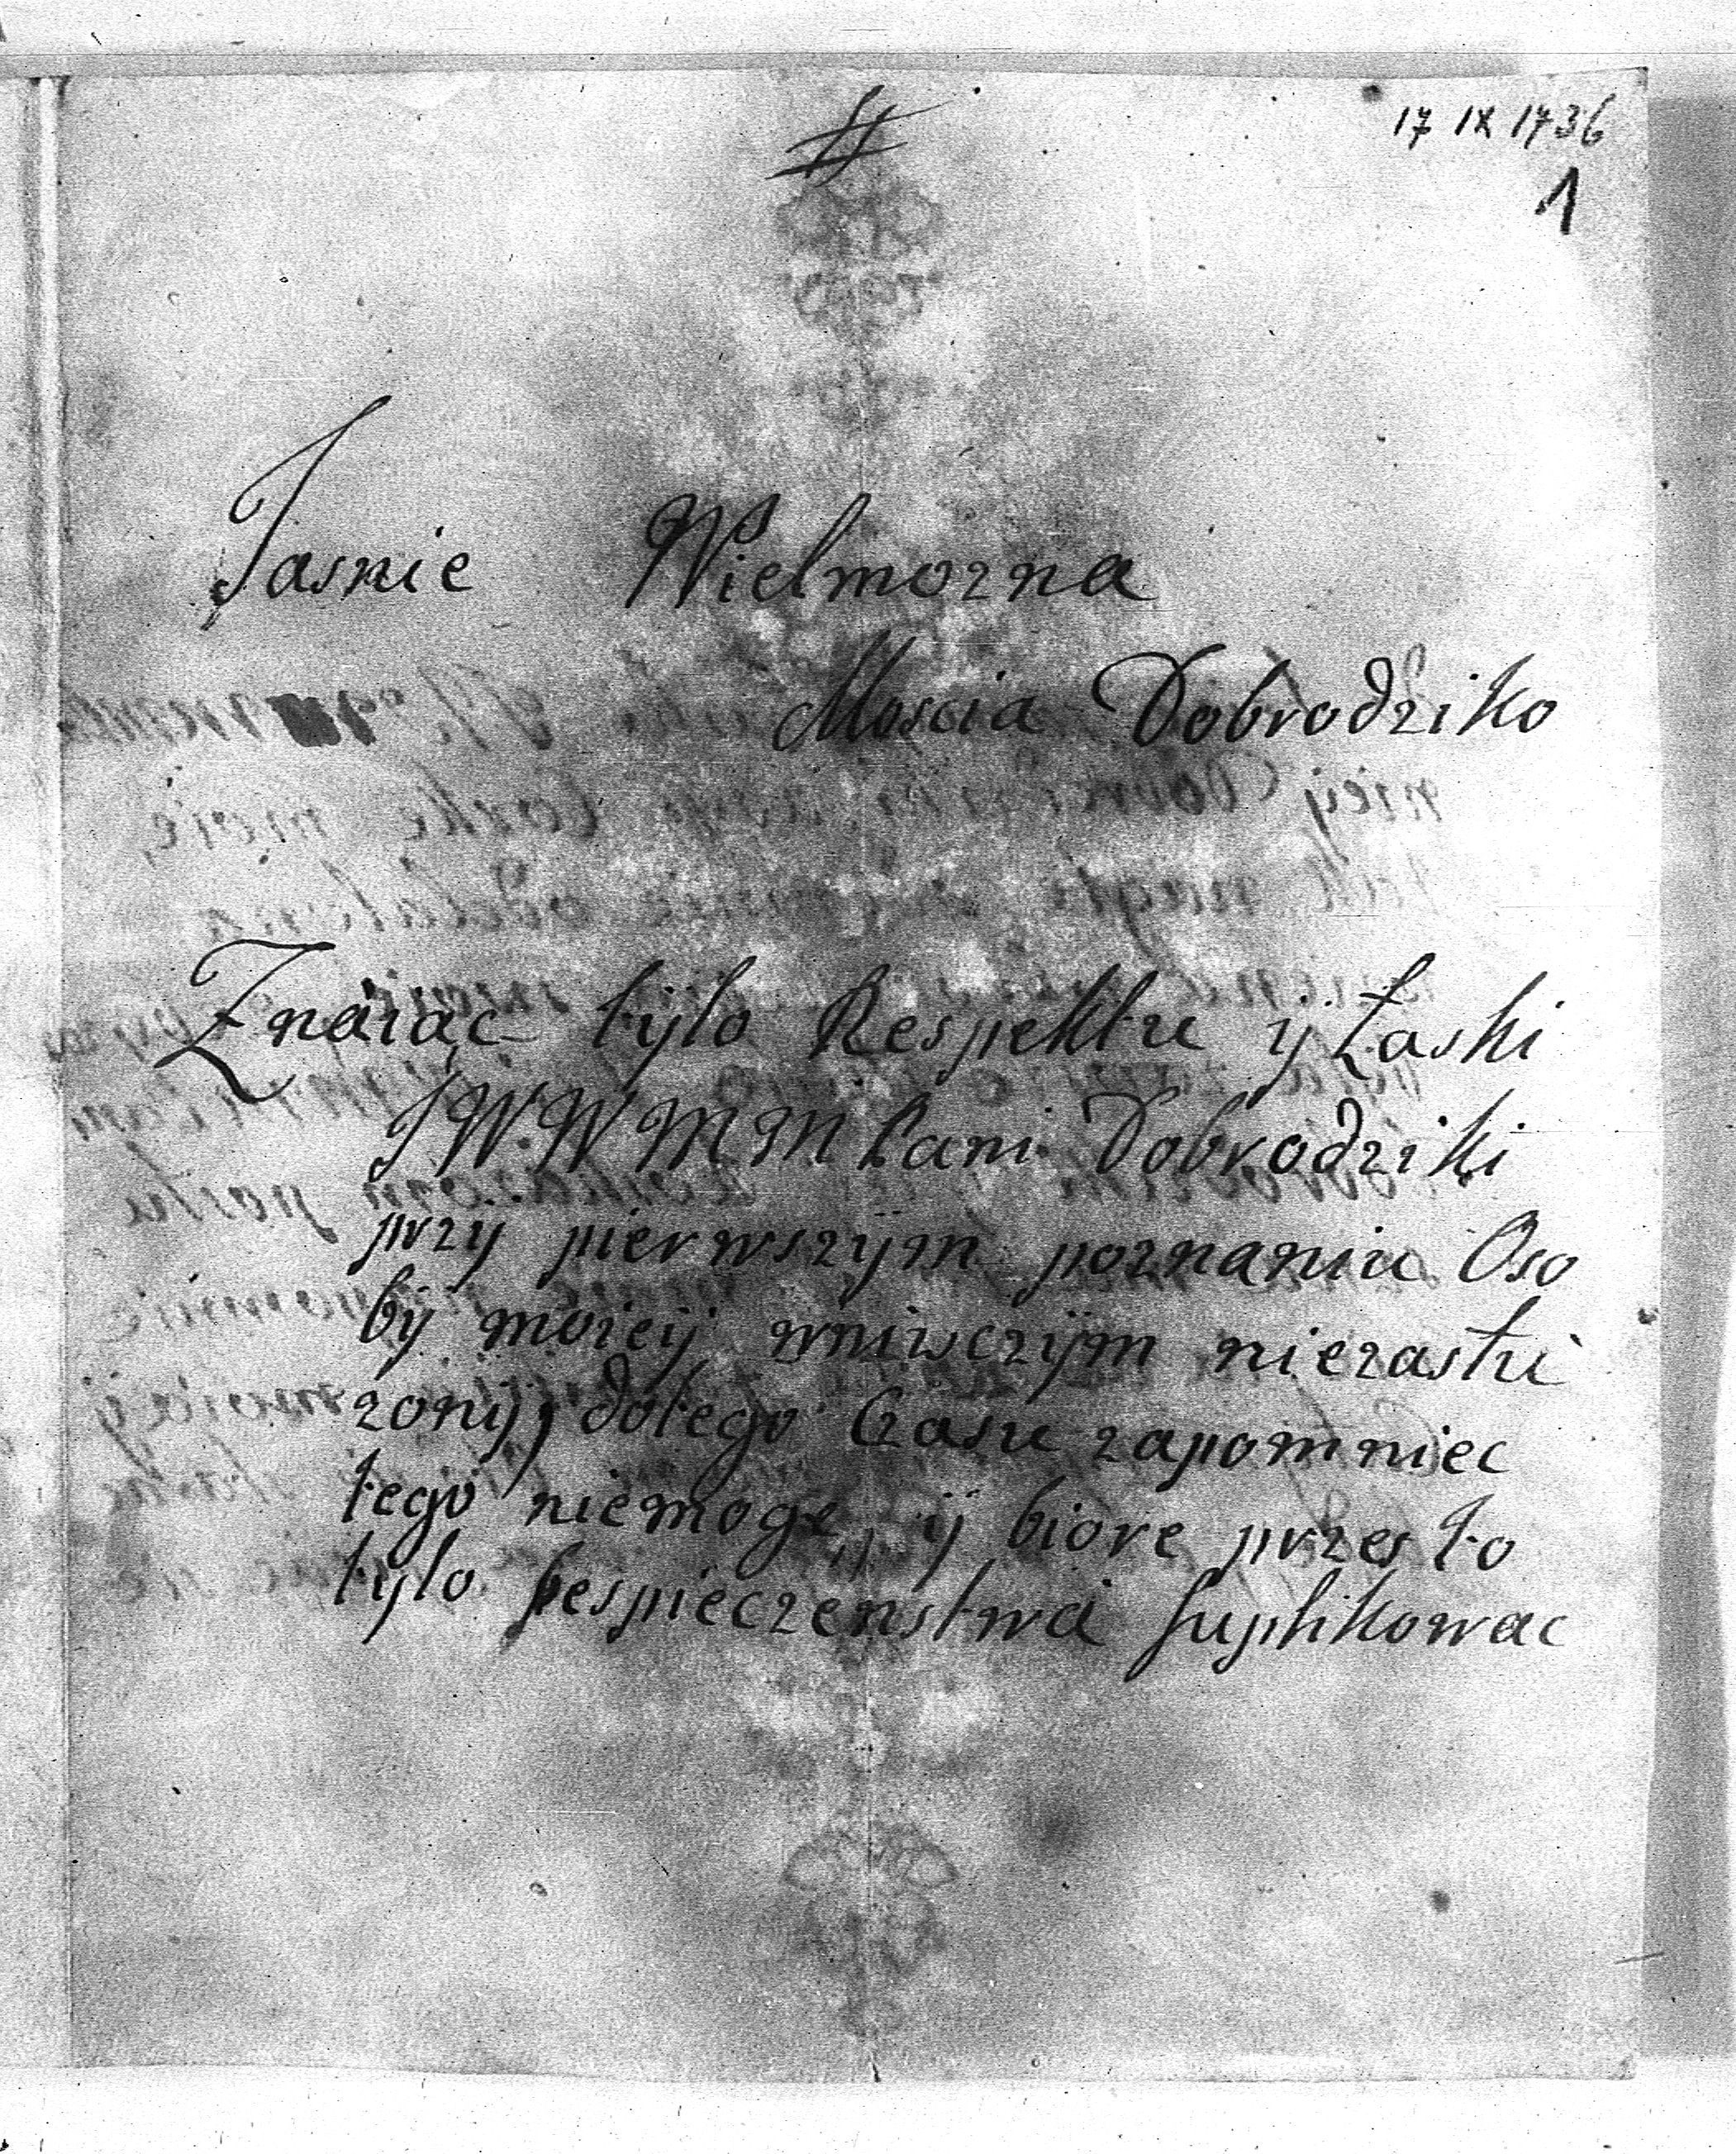 #
17 IX 1736
1
Jasnie Wielmozna
Moscia Dobrodziko
Znaiąc tylo Respektu ÿ Łaski
JW. W M M Pani Dobrodziki
przÿ pierwszÿm poznaniu Oso
bÿ moieÿ wniwczÿm niezasłu
zonÿ, dotego Czasu zapomniec
tego niemoge, ÿ biore przes to
tylo bespieczenstwa suplikowac